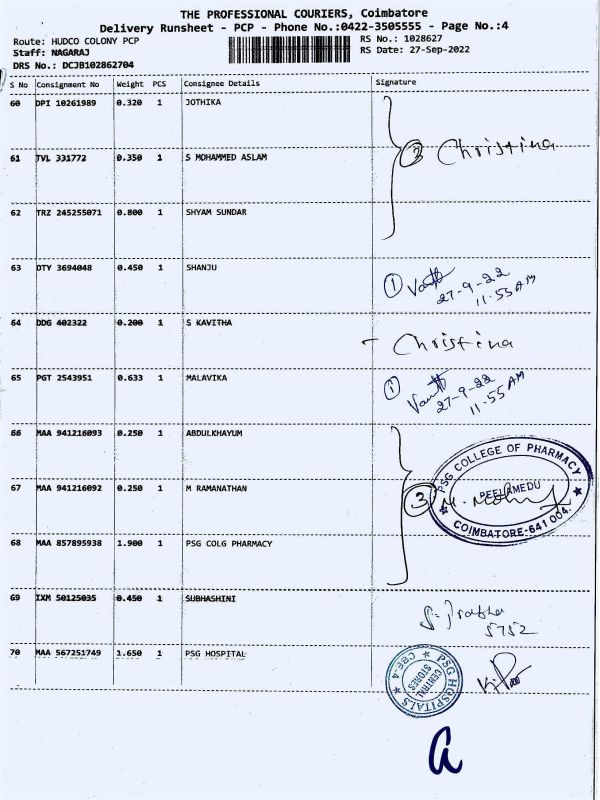 THE PROFESSIONAL COURIERS, Coimbatore
Delivery Runsheet - PCP - Phone No.:0422-3505555 - Page No.:4
Route: HUDCO COLONY PCP RS No.: 1028627
Staff: NAGARAJ RS Date: 27-Sep-2022
DRS No.: DCJB102862704
S No Consignment No Weight PCS Consignee Details Signature
60 DPI 10261989 0.320 1 JOTHIKA
3 Christina
61 TVL 331772 0.350 1 S MOHAMMED ASLAM
62 TRZ 245255071 0.800 1 SHYAM SUNDAR
63 DTY 3694048 0.450 1 SHANJU
1 27-9-22
11.55 AM
64 DDG 402322 0.200 1 S KAVITHA
- Christina
65 PGT 2543951 0.633 1 MALAVIKA
1 27-9-22
11.55 AM
66 MAA 941216093 0.250 1 ABDULKHAYUM
PSG COLLEGE OF PHARMACY
67 MAA 941216092 0.250 1 M RAMANATHAN
3 PEELAMEDU
COIMBATORE-641 004.
68 MAA 857895938 1.900 1 PSG COLG PHARMACY
69 IXM 50125035 0.450 1 SUBHASHINI
5752
70 MAA 567251749 1.650 1 PSG HOSPITAL
PSG HOSPITALS
CENTRAL
STORES
CBE-4
a